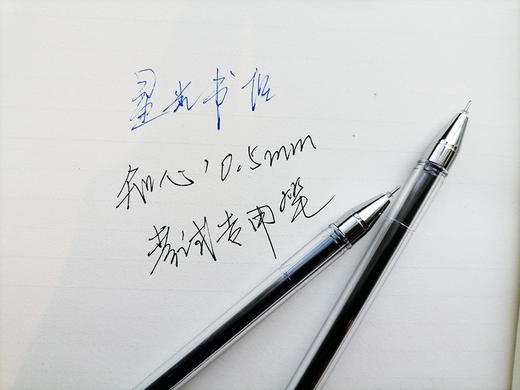 星光书店
知心，0.5mm
考试专用笔